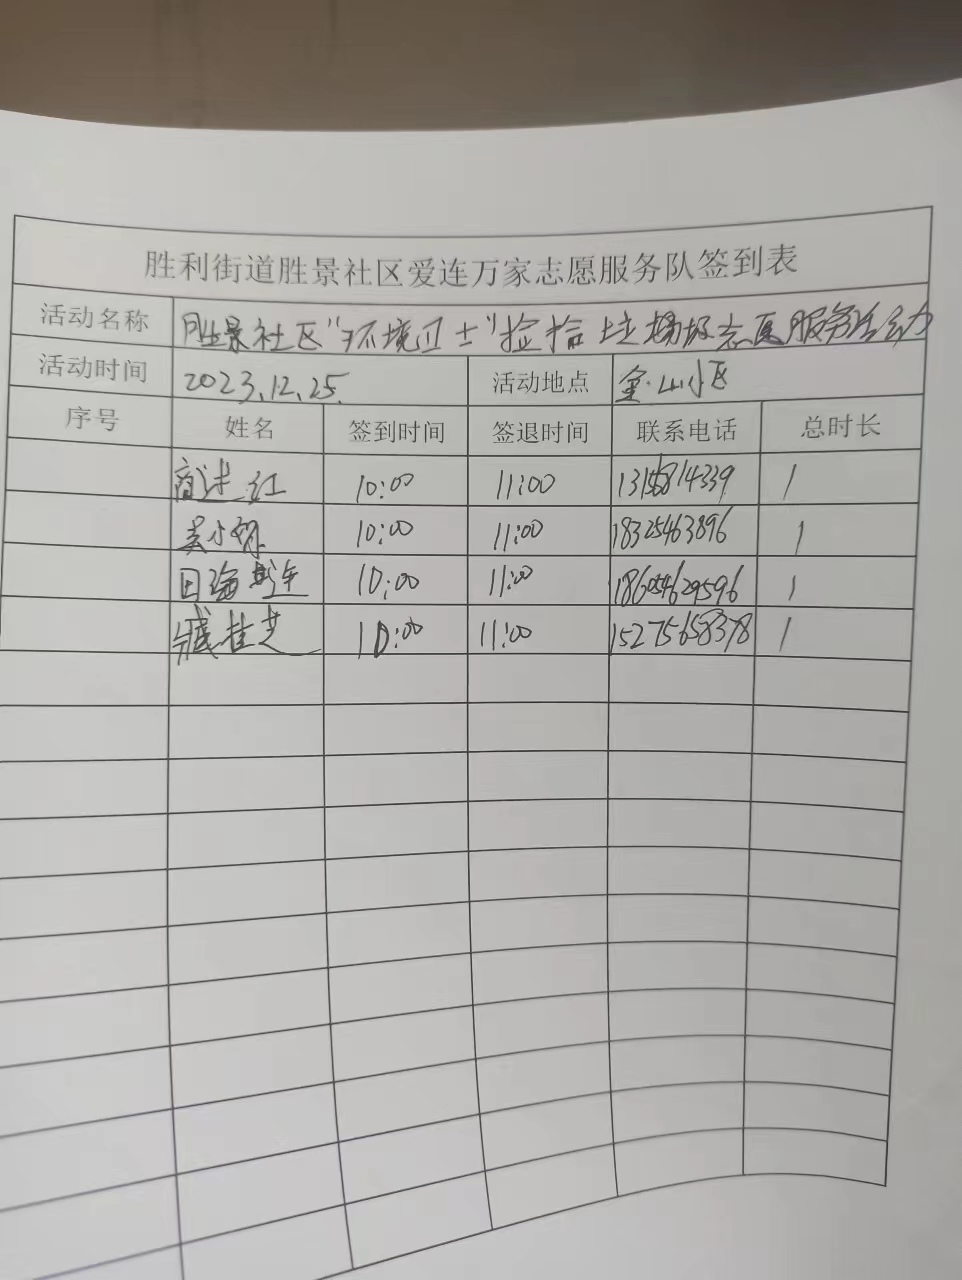 胜利街道胜景社区爱连万家志愿服务队签到表
活动名称 胜景社区"环境卫士"捡拾垃圾志愿服务活动
活动时间 2023.12.25. 活动地点 金山小区
序号 姓名 签到时间 签退时间 联系电话 总时长
商进红 10:00 11:00 1
吴小妹 10:00 11:00 18325463896 1
田海 10:00 11:00 186054629596 1
臧桂芝 10:00 11:00 15275658378 1